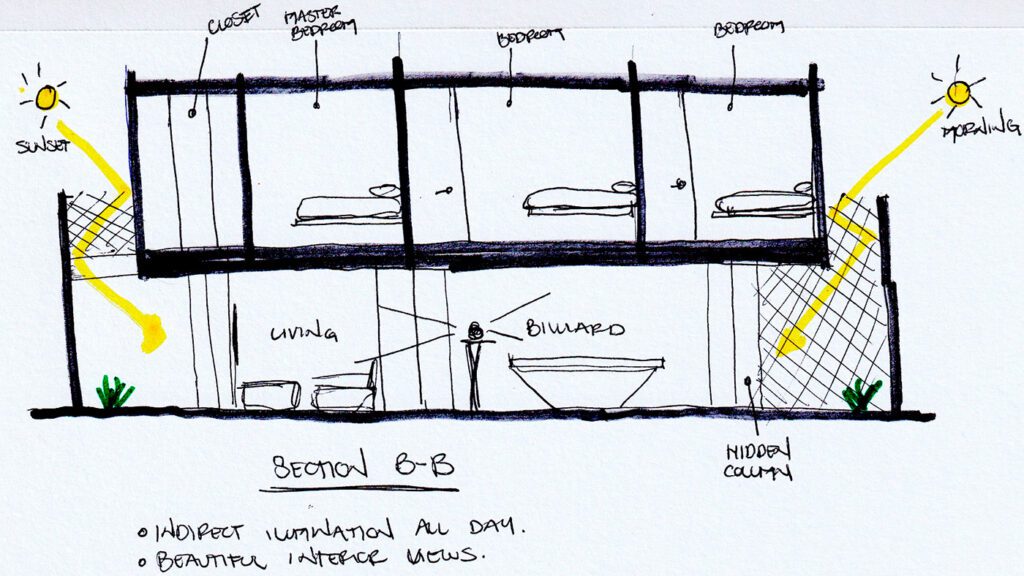 CLOSET
MASTER
BEDROOM
BEDROOM
BEDROOM
SUNSET
MORNING
LIVING
BILLIARD
HIDDEN
COLUMN
SECTION B-B
INDIRECT ILUMINATION ALL DAY.
BEAUTIFUL INTERIOR VIEWS.